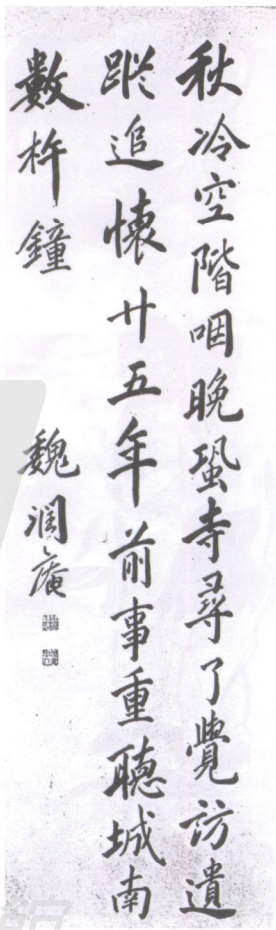 秋冷空階咽晚蛩寺尋了覺訪遺
蹤追懷廿五年前事重聽城南
數杵鐘
魏潤庵